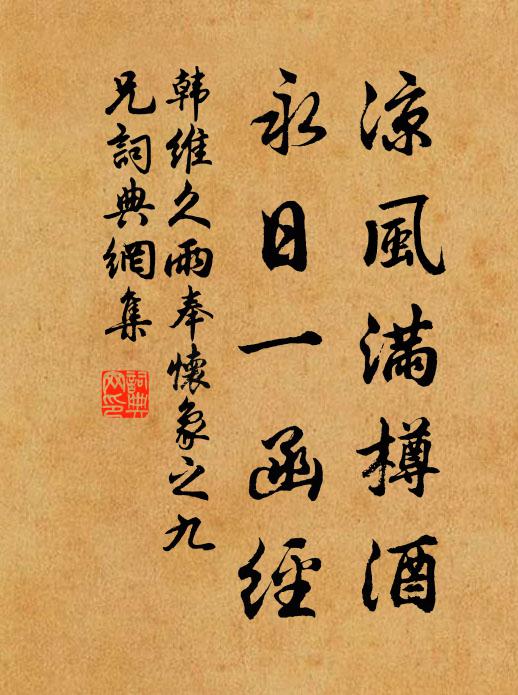 凉風滿樽酒
永日一函經
韩維久雨奉懷象之九
兄詞典網集
詞典网印